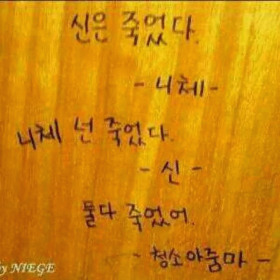 신은 죽었다.
- 니체 -
니체 넌 죽었다.
- 신 -
둘다 죽었어.
- 청소아줌마 -
by NIEGE